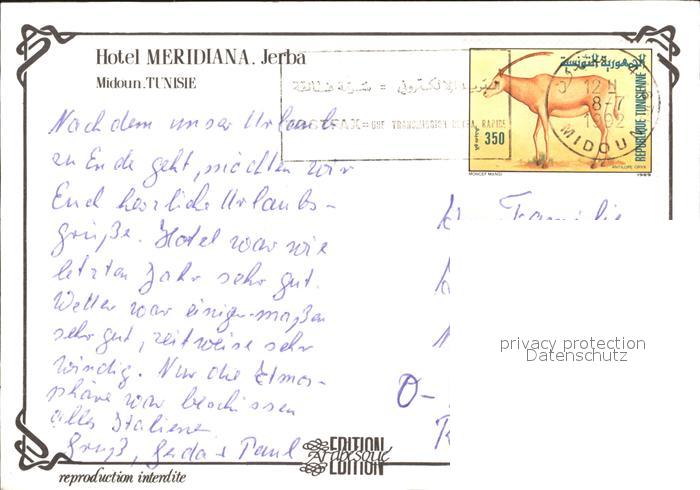 Hotel MERIDIANA. Jerba
Midoun.TUNISIE
الجمهورية التونسية
REPUBLIQUE TUNISIENNE
350
ANTILOPE ORYX
MONCEF MANSI
1989
12 H
8-7
1992
MIDOUN
البريد الإلكتروني = سرعة فائقة
= UNE TRANSMISSION ULTRA RAPIDE
Nachdem unser Urlaub
zu Ende geht, möchten wir
Euch herzliche Urlaubs-
grüße. Hotel war wie
letzten Jahr sehr gut.
Wetter war einigermaßen
sehr gut, zeitweise sehr
windig. Nur die Atmos-
phäre war beschissen
alles Italiener
Gruß, Gerda + Paul
Familie
O-
privacy protection
Datenschutz
EDITION
Arabesque
EDITION
reproduction interdite